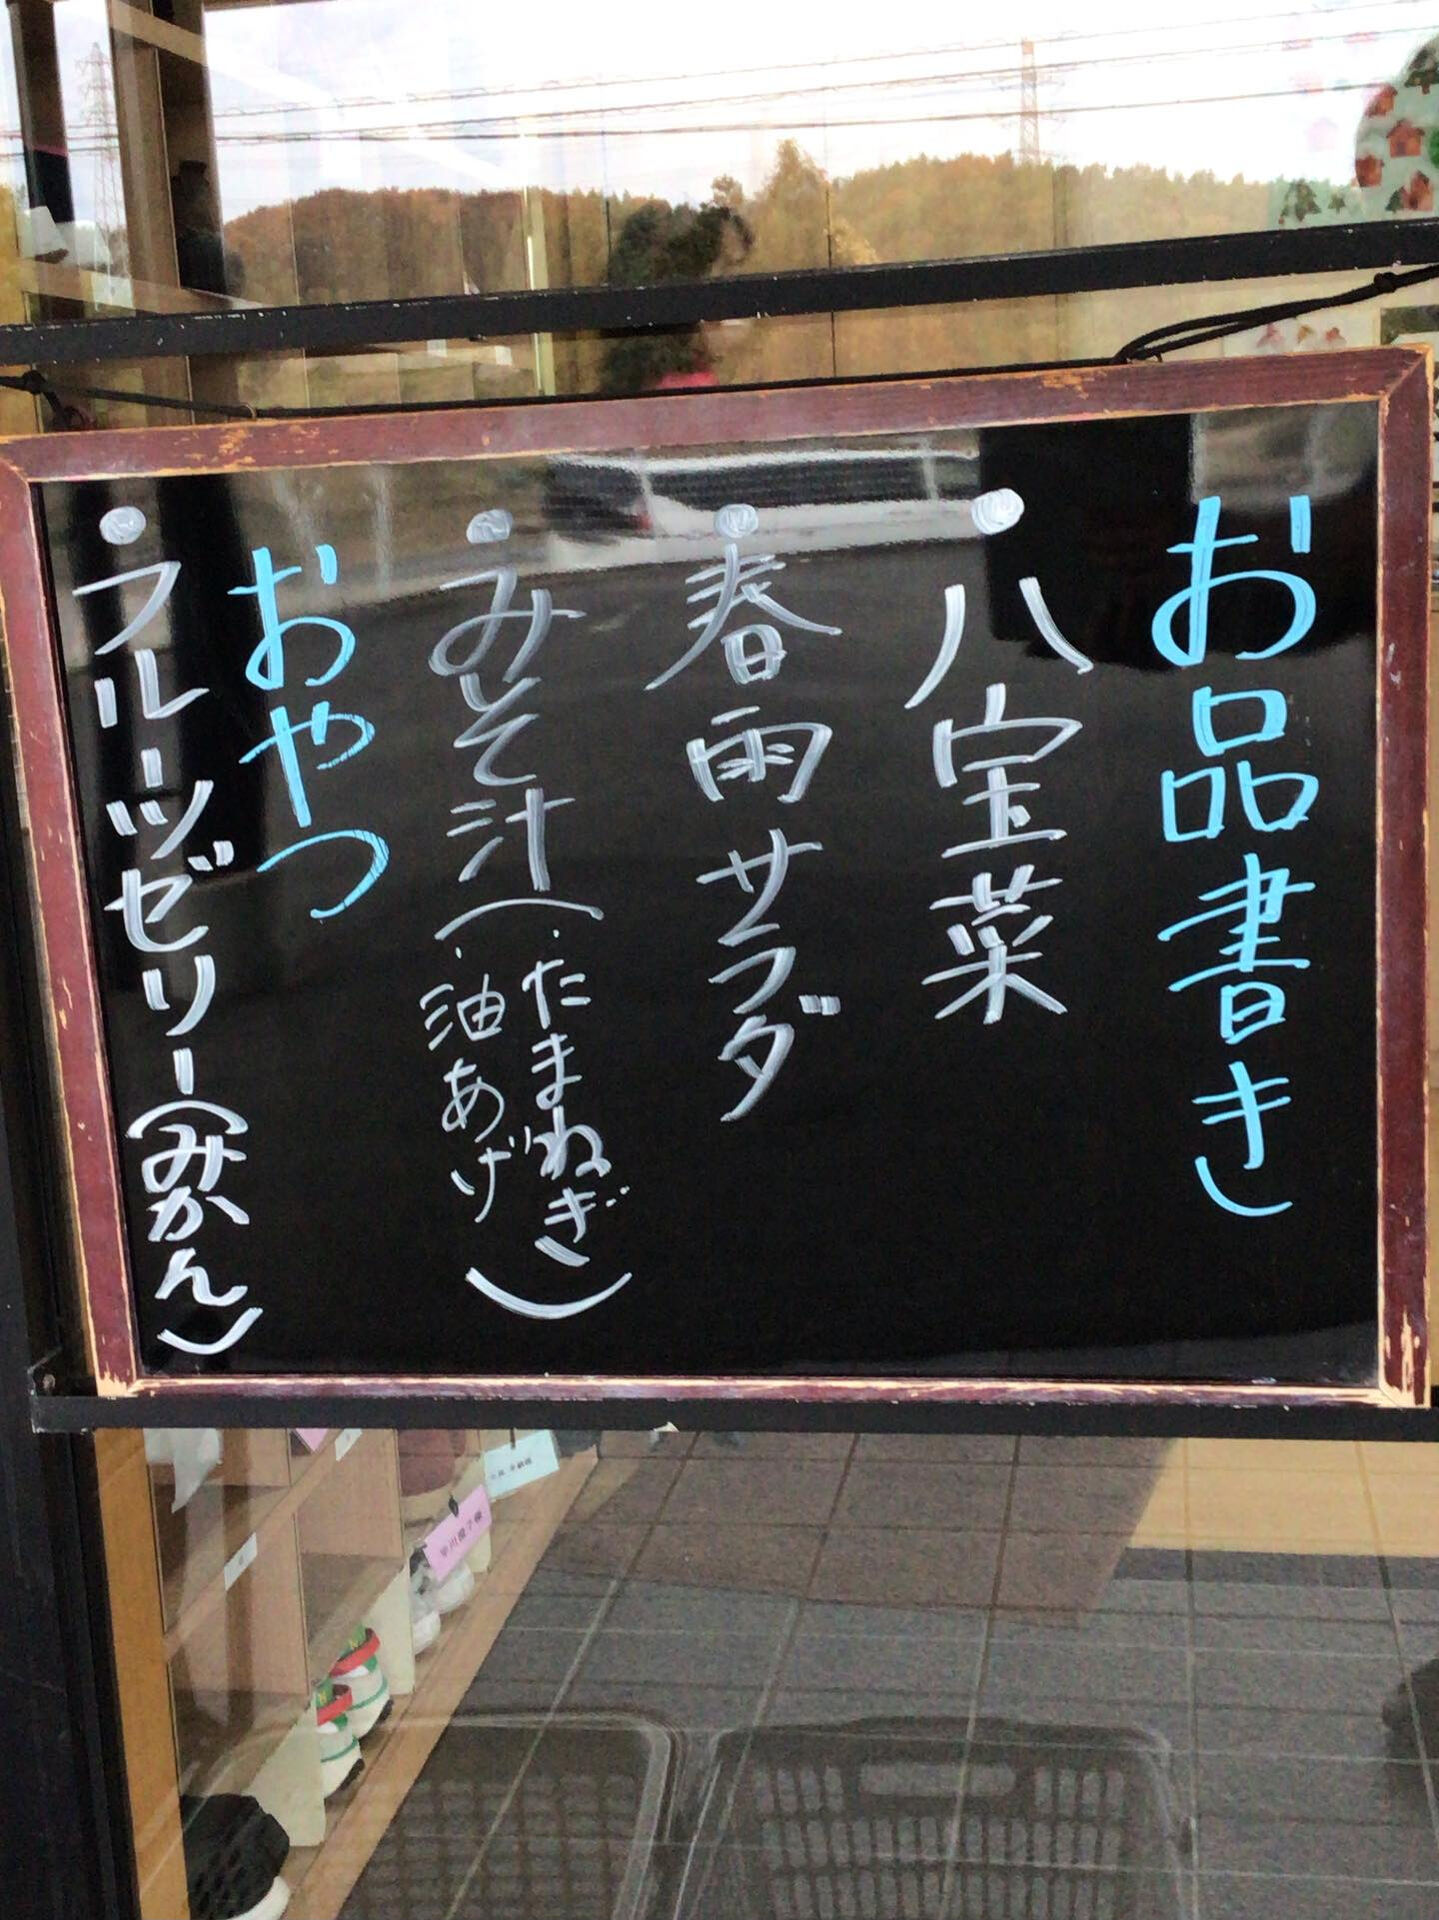 お品書き
・八宝菜
・春雨サラダ
・みそ汁(・たまねぎ
・油あげ)
おやつ
・フルーツゼリー(みかん)